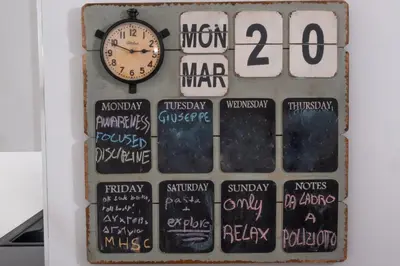 MON
MAR
2
0
MONDAY
AWARENESS
FOCUSED
DISCIPLINE
TUESDAY
GIUSEPPE
WEDNESDAY
THURSDAY
FRIDAY
MHSC
SATURDAY
pasta
+
explore
SUNDAY
only
RELAX
NOTES
DA LADRO
A
POLIZIOTTO